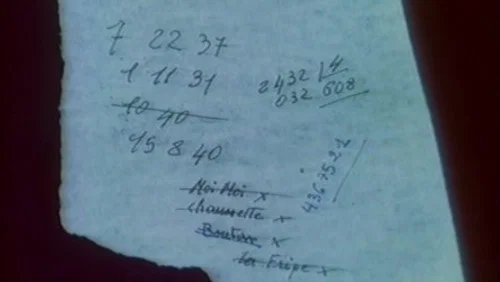 7 22 37
1 11 31
10 40
15 8 40
2432 4
032 608
4367522
Moi Moi x
chaussette x
Bouton x
La Fripe x